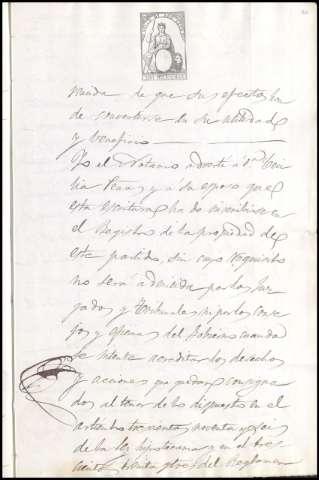 de que sus efectos han
de convertirse en su utilidad
y beneficio
Yo el Notario advertí á Dª
Peña, y a su esposo que
esta escritura ha de inscribirse en
el Registro de la propiedad de
este partido, sin cuyo requisito
no será admitida por los Juz
gados y Tribunales ni por los Conse
jos y oficinas del Gobierno cuando
se intente acreditar los derechos
y acciones que puedan consigna
dos al tenor de lo dispuesto en el
artículo trescientos noventa y seis
de la ley hipotecaria y en el tres
cientos treinta y dos del Reglamen